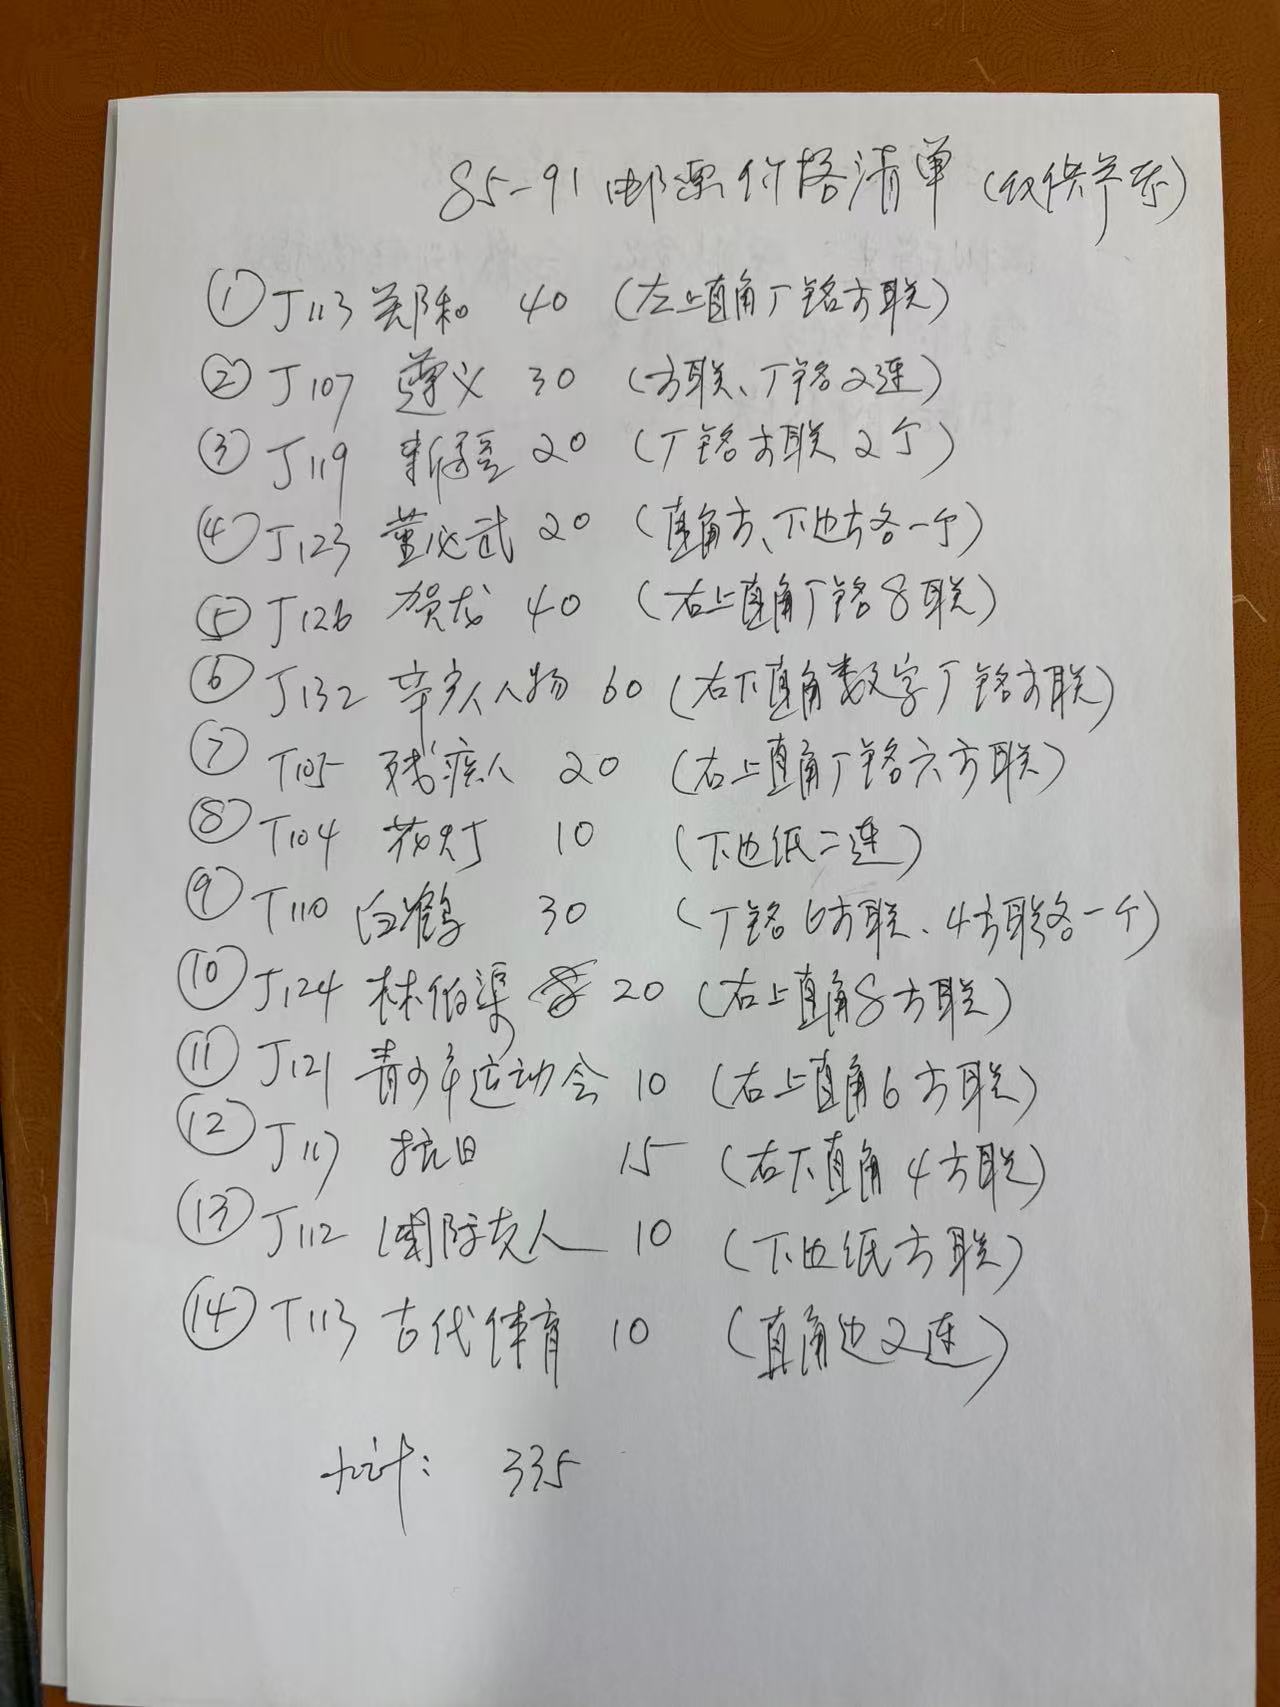 85-91邮票价格清单(仅供参考)
① J113 郑和 40 (左上直角厂铭方联)
② J107 遵义 30 (方联、厂铭2连)
③ J119 新疆 20 (厂铭方联2个)
④ J123 董必武 20 (直角方、下边方各一个)
⑤ J126 贺龙 40 (右上直角厂铭8联)
⑥ J132 辛亥人物 60 (右下直角数字厂铭方联)
⑦ T105 残疾人 20 (右上直角厂铭六方联)
⑧ T104 花灯 10 (下边纸二连)
⑨ T110 白鹤 30 (厂铭6方联、4方联各一个)
⑩ J124 林伯渠 20 (右上直角8方联)
⑪ J121 青少年运动会 10 (右上直角6方联)
⑫ J117 抗日 15 (右下直角4方联)
⑬ J112 国际友人 10 (下边纸方联)
⑭ T113 古代体育 10 (直角边2连)
小计: 335